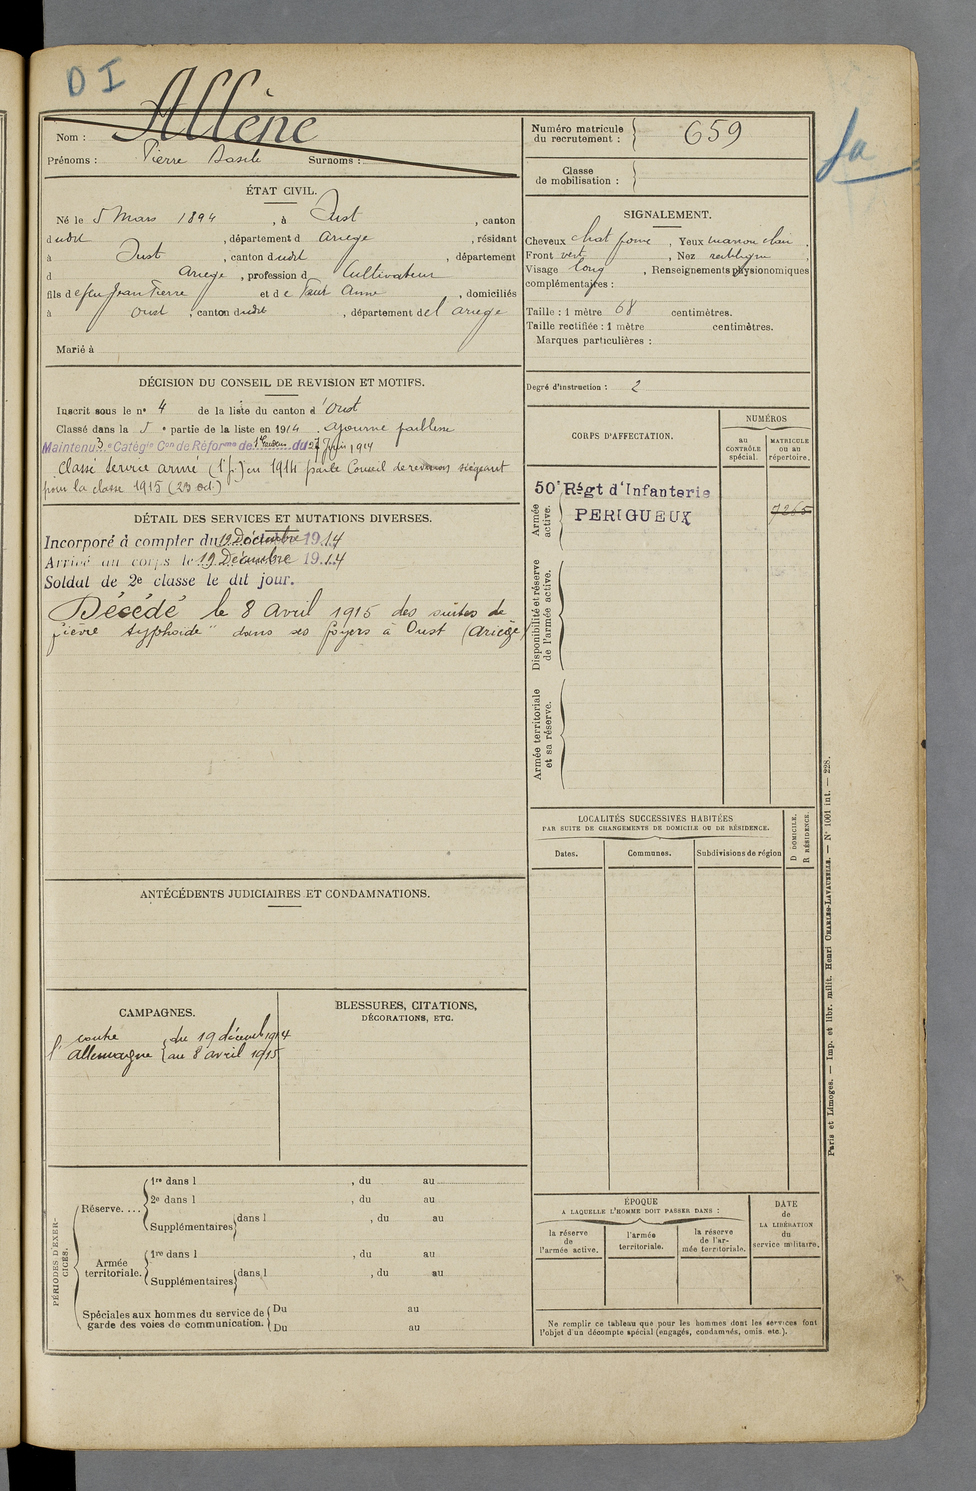 D I
Allène
Nom :
Prénoms : Pierre Basile Surnoms :
Numéro matricule du recrutement : 659
Classe de mobilisation :
fa
ÉTAT CIVIL.
Né le 5 Mars 1894, à Oust, canton
dudit, département d Ariège, résidant
à Oust, canton dudit, département
d Ariège, profession d Cultivateur
fils de feu Jean Pierre et de Faur Anne, domiciliés
à Oust, canton dudit, département de l'ariege
Marié à
DÉCISION DU CONSEIL DE REVISION ET MOTIFS.
Inscrit sous le n° 4 de la liste du canton d'Oust
Classé dans la 5e partie de la liste en 1914. ajourné faiblesse
Maintenu 3e Catégie Con de Réforme de du 27 Juin 1914
Classé service armé (1 p.) en 1914 par le Conseil de revision siégeant
pour la classe 1915 (23 oct.)
DÉTAIL DES SERVICES ET MUTATIONS DIVERSES.
Incorporé à compter du 19 Décembre 1914
Arrivé au corps le 19 Décembre 1914
Soldat de 2e classe le dit jour.
Décédé le 8 avril 1915 des suites de
fièvre typhoïde" dans ses foyers à Oust (Ariège)
ANTÉCÉDENTS JUDICIAIRES ET CONDAMNATIONS.
CAMPAGNES.
contre { du 19 décemb 1914
l'allemagne { au 8 avril 1915
BLESSURES, CITATIONS,
DÉCORATIONS, ETC.
PÉRIODES D'EXERCICES.
Réserve....
1re dans l , du au
2e dans l , du au
Supplémentaires dans l , du au
Armée territoriale.
1re dans l , du au
Supplémentaires dans l , du au
Spéciales aux hommes du service de garde des voies de communication.
Du au
Du au
SIGNALEMENT.
Cheveux chat foncé, Yeux marron clair.
Front vert, Nez rectiligne,
Visage long, Renseignements physionomiques
complémentaires :
Taille : 1 mètre 68 centimètres.
Taille rectifiée : 1 mètre centimètres.
Marques particulières :
Degré d'instruction : 2
CORPS D'AFFECTATION.
NUMÉROS
au CONTRÔLE spécial.
MATRICULE ou au répertoire.
Armée active.
50e Régt d'Infanterie
PERIGUEUX
7265
Disponibilité et réserve de l'armée active.
Armée territoriale et sa réserve.
LOCALITÉS SUCCESSIVES HABITÉES
PAR SUITE DE CHANGEMENTS DE DOMICILE OU DE RÉSIDENCE.
Dates. Communes. Subdivisions de région
D DOMICILE.
R RÉSIDENCE.
ÉPOQUE
A LAQUELLE L'HOMME DOIT PASSER DANS :
la réserve de l'armée active.
l'armée territoriale.
la réserve de l'armée territoriale.
DATE de LA LIBÉRATION du service militaire.
Ne remplir ce tableau que pour les hommes dont les services font
l'objet d'un décompte spécial (engagés, condamnés, omis. etc.).
Paris et Limoges. — Imp. et libr. milit. Henri CHARLES-LAVAUZELLE. — N° 1001 int. — 228.